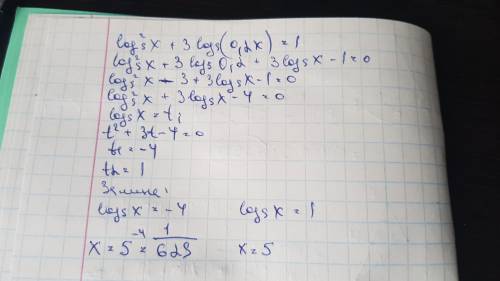 log₅²x + 3 log₅(0,2x) = 1
log₅²x + 3 log₅0,2 + 3 log₅x - 1 = 0
log₅²x - 3 + 3 log₅x - 1 = 0
log₅²x + 3 log₅x - 4 = 0
log₅x = t;
t² + 3t - 4 = 0
t₁ = -4
t₂ = 1
Замина:
log₅x = -4 log₅x = 1
x = 5⁻⁴ = 1/625 x = 5